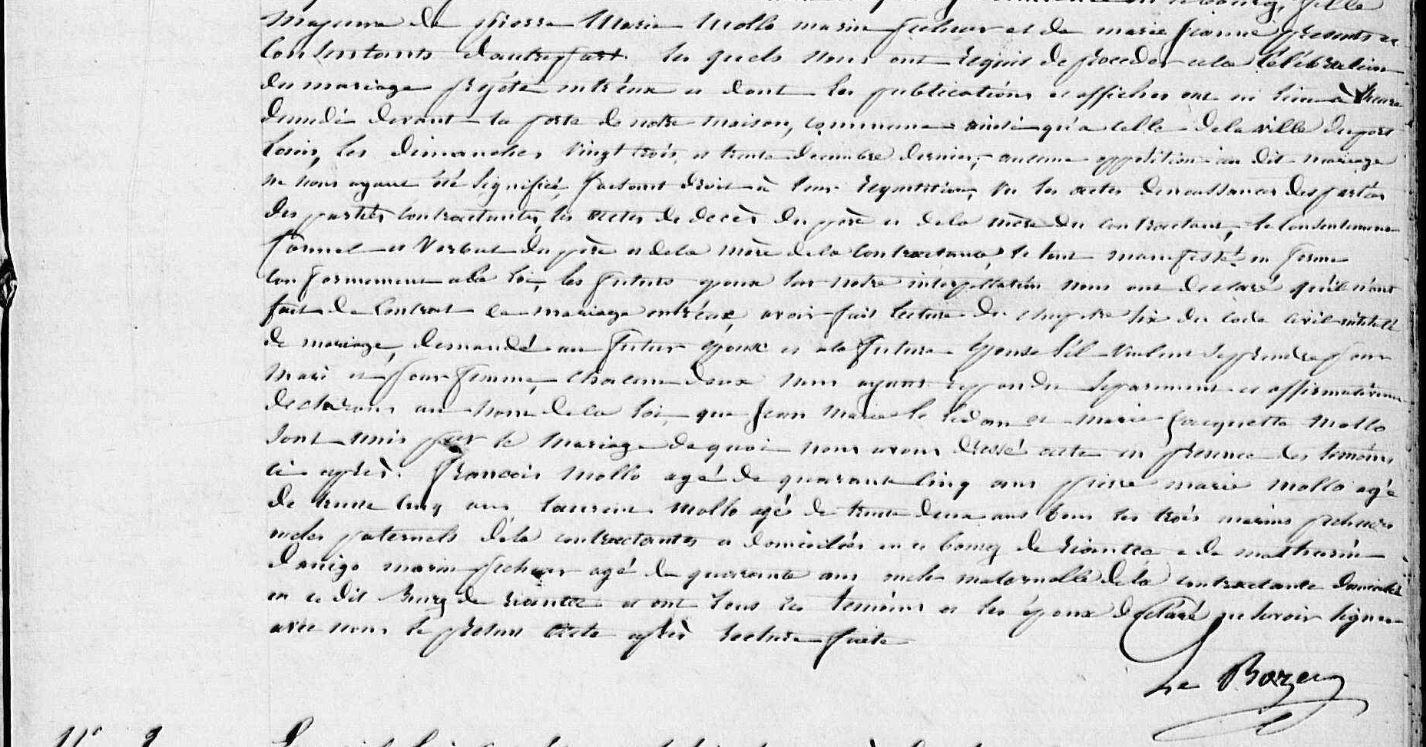 majeure de pierre Marie Mollo marin pecheur et de marie jeanne presents et
Consentants d'autrepart les quels nous ont requis de proceder a la Célébration
du mariage projeté entréux et dont les publications et affiches ont eu lieu à heure
demidi devant la porte de notre maison, commune ainsi qu'a celle de la ville du port
Louis, les dimanches vingt trois et trente decembre dernier, aucune opposition au dit mariage
ne nous ayant été Signifié, faisant droit à leur requisition, Vu les actes de naissances des partes
des parties Contractantes, les actes de decès du père et de la mère du contractant, le Consentement
formel et Verbal du père et de la mère de la Contractante le tout manifesté en forme
Conformement a la loi, les futurs epoux sur notre interpellation nous ont declaré qu'il n'ont
fait de Contrat de mariage entréux, avoir fait lecture du chapitre Six du Code Civil intitulé
de mariage, demandé au futur epoux et a la future Epouse S'il Veulent Se prendre pour
Mari et pour femme, chacun deux nous ayant repondu Separement et affirmativement
declarons au Nom de la loi, que jean Marie le et marie jacquette Mollo
Sont unis par le Mariage de quoi nous avons dressé acte en presence des temoins
ci après. françois Mollo agé de quarante Cinq ans pierre marie Mollo agé
de trente Cinq ans laurent Mollo agé de trente deux ans tous les trois marins pecheurs
oncles paternels de la contractantes et domiciliés en ce bourg de riantec et de mathurin
marin pecheur agé de quarante ans oncle maternelle de la contractante domicilié
en ce dit Bourg de riantec et ont tous les temoins et les époux declaré ne Savoir Signer
avec nous le présent acte après lecture faite
Le Bozec
Nº 2